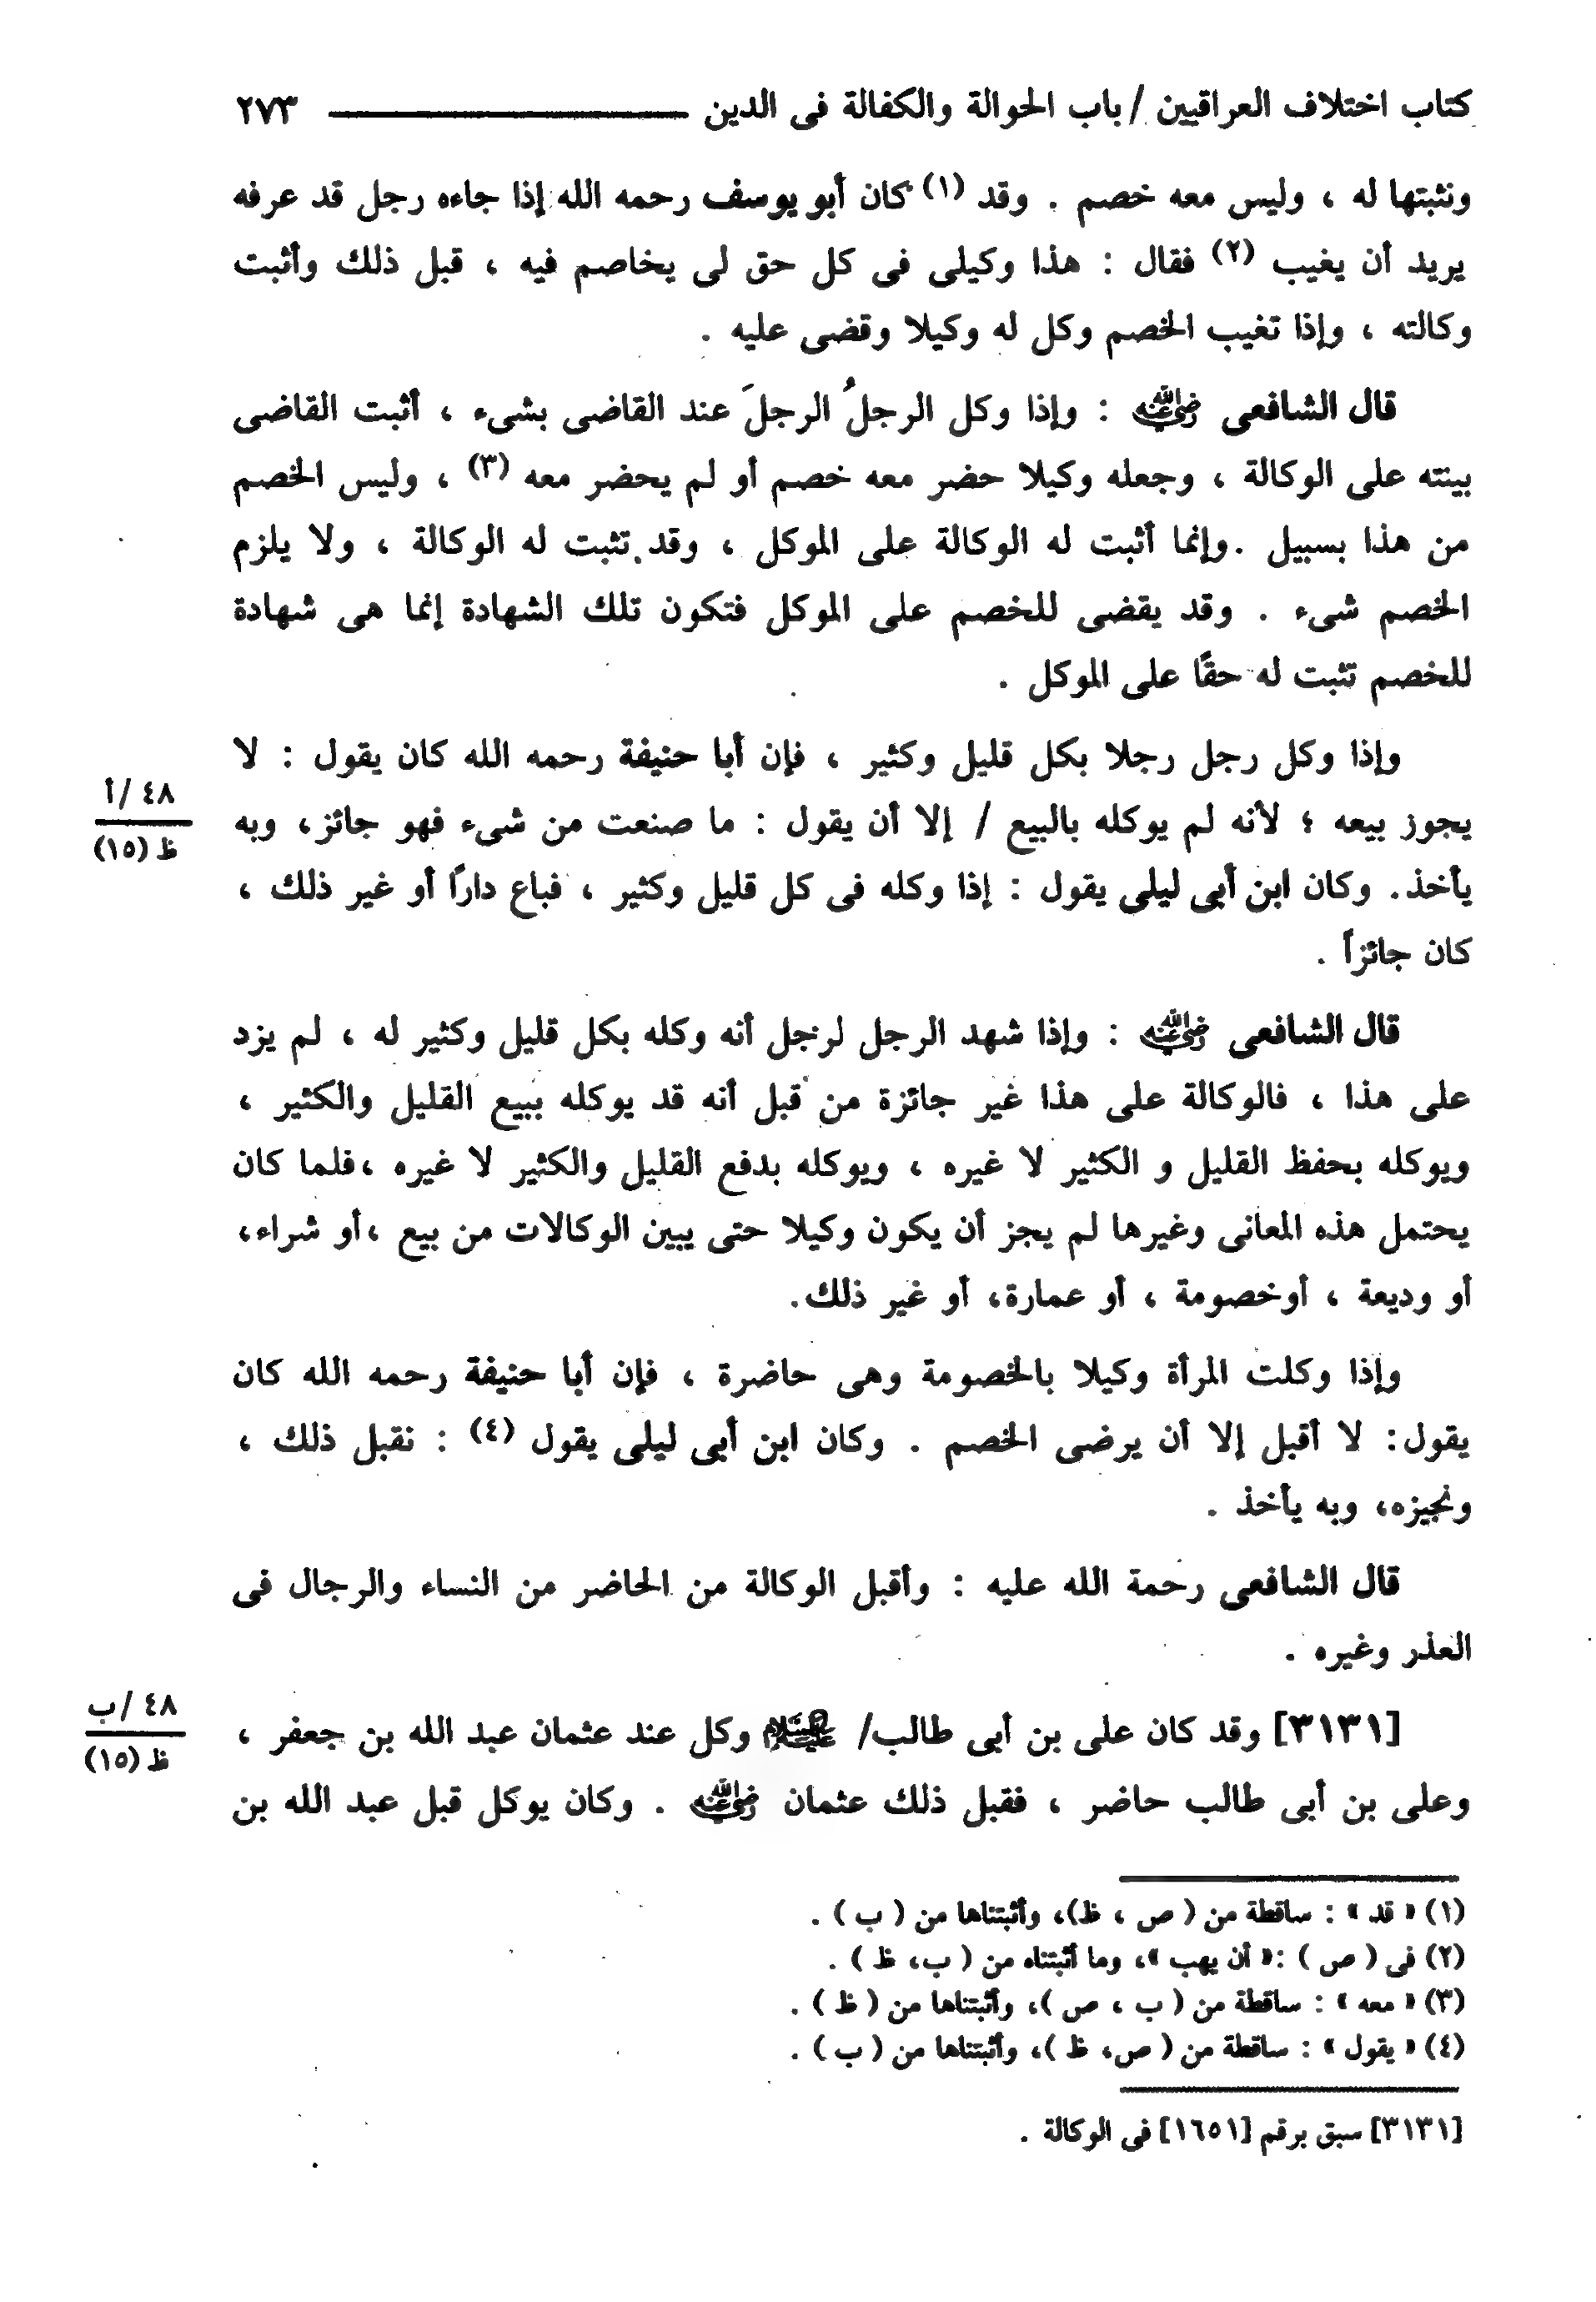 كتاب اختلاف العراقيين / باب الحوالة والكفالة فى الدين ٢٧٣
ونثبتها له ، وليس معه خصم . وقد (١) كان أبو يوسف رحمه الله إذا جاءه رجل قد عرفه
يريد أن يغيب (٢) فقال : هذا وكيلى فى كل حق لى يخاصم فيه ، قبل ذلك وأثبت
وكالته ، وإذا تغيب الخصم وكل له وكيلا وقضى عليه .
قال الشافعى رضي الله عنه : وإذا وكل الرجلُ الرجلَ عند القاضى بشىء ، أثبت القاضى
بينته على الوكالة ، وجعله وكيلا حضر معه خصم أو لم يحضر معه (٣) ، وليس الخصم
من هذا بسبيل . وإنما أثبت له الوكالة على الموكل ، وقد تثبت له الوكالة ، ولا يلزم
الخصم شىء . وقد يقضى للخصم على الموكل فتكون تلك الشهادة إنما هى شهادة
للخصم تثبت له حقًا على الموكل .
وإذا وكل رجل رجلا بكل قليل وكثير ، فإن أبا حنيفة رحمه الله كان يقول : لا
٤٨ /أ
يجوز بيعه ؛ لأنه لم يوكله بالبيع / إلا أن يقول : ما صنعت من شىء فهو جائز، وبه
ظ (١٥)
يأخذ. وكان ابن أبى ليلى يقول : إذا وكله فى كل قليل وكثير ، فباع دارًا أو غير ذلك ،
كان جائزاً .
قال الشافعى رضي الله عنه : وإذا شهد الرجل لرجل أنه وكله بكل قليل وكثير له ، لم يزد
على هذا ، فالوكالة على هذا غير جائزة من قبل أنه قد يوكله ببيع القليل والكثير ،
ويوكله بحفظ القليل و الكثير لا غيره ، ويوكله بدفع القليل والكثير لا غيره ،فلما كان
يحتمل هذه المعانى وغيرها لم يجز أن يكون وكيلا حتى يبين الوكالات من بيع ،أو شراء،
أو وديعة ، أوخصومة ، أو عمارة، أو غير ذلك.
وإذا وكلت المرأة وكيلا بالخصومة وهى حاضرة ، فإن أبا حنيفة رحمه الله كان
يقول: لا أقبل إلا أن يرضى الخصم . وكان ابن أبى ليلى يقول (٤) : نقبل ذلك ،
ونجيزه، وبه يأخذ .
قال الشافعى رحمة الله عليه : وأقبل الوكالة من الحاضر من النساء والرجال فى
العذر وغيره .
٤٨ /ب
[٣١٣١] وقد كان على بن أبى طالب/ عليه السلام وكل عند عثمان عبد الله بن جعفر ،
ظ (١٥)
وعلى بن أبى طالب حاضر ، فقبل ذلك عثمان رضي الله عنه . وكان يوكل قبل عبد الله بن
(١) « قد » : ساقطة من ( ص ، ظ)، وأثبتناها من ( ب ) .
(٢) فى ( ص ) :« أن يهب »، وما أثبتناه من ( ب، ظ ) .
(٣) « معه » : ساقطة من ( ب ، ص )، وأثبتناها من ( ظ ) .
(٤) « يقول » : ساقطة من ( ص، ظ )، وأثبتناها من ( ب ) .
[٣١٣١] سبق برقم [١٦٥١] فى الوكالة .